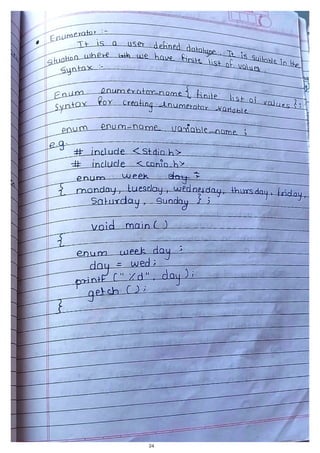 • Enumerator :-
It is a user defined datatype. It is suitable in the
situation where we have finite list of values
Syntax :-
Enum enumerator-name { finite list of values };
Syntax for creating enumerator variable
enum enum-name variable-name ;
e.g.
# include <stdio.h>
# include <conio.h>
enum week
{ monday, tuesday, wednesday, thursday, friday,
Saturday, Sunday } ;
void main ( )
{
enum week day ;
day = wed ;
printf ("%d", day ) ;
getch ( ) ;
}
24